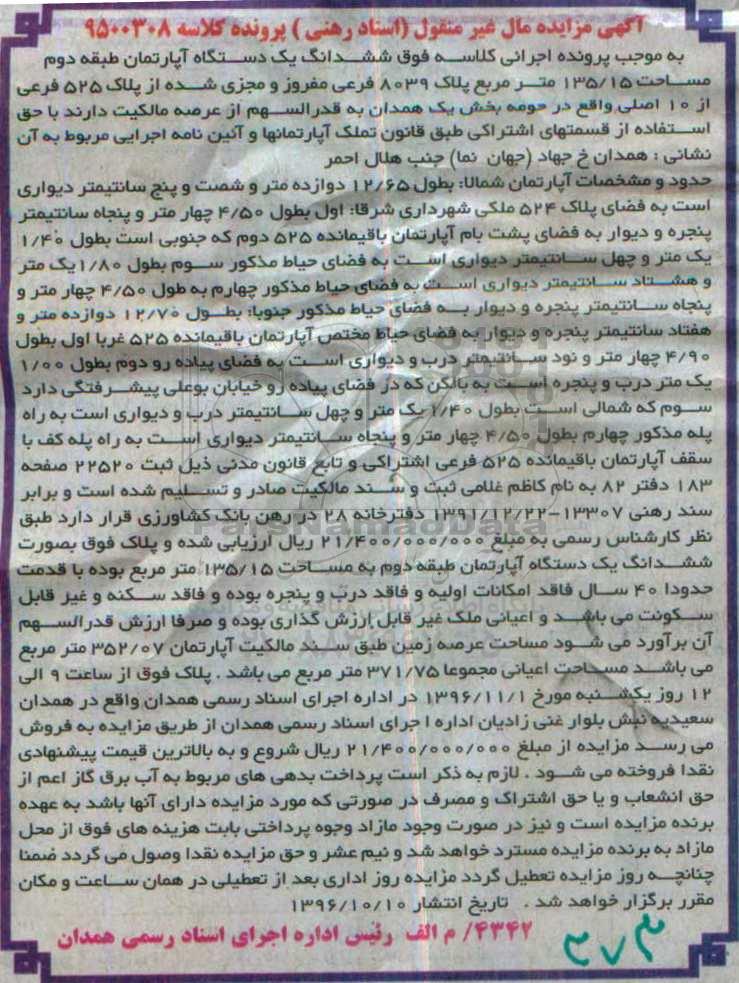 آگهی مزایده مال غیر منقول (اسناد رهنی ) پرونده کلاسه ۹۵۰۰۳۰۸
به موجب پرونده اجرائی کلاسه فوق ششدانگ یک دستگاه آپارتمان طبقه دوم
مساحت ۱۳۵/۱۵ متر مربع پلاک ۸۰۳۹ فرعی مفروز و مجزی شده از پلاک ۵۲۵ فرعی
از ۱۰ اصلی واقع در حومه بخش یک همدان به قدرالسهم از عرصه مالکیت دارند با حق
استفاده از قسمتهای اشتراکی طبق قانون تملک آپارتمانها و آئین نامه اجرایی مربوط به آن
نشانی : همدان خ جهاد (جهان نما) جنب هلال احمر
حدود و مشخصات آپارتمان شمالا: بطول ۱۲/۶۵ دوازده متر و شصت و پنج سانتیمتر دیواری
است به فضای پلاک ۵۲۴ ملکی شهرداری شرقا: اول بطول ۴/۵۰ چهار متر و پنجاه سانتیمتر
پنجره و دیوار به فضای پشت بام آپارتمان باقیمانده ۵۲۵ دوم که جنوبی است بطول ۱/۴۰
یک متر و چهل سانتیمتر دیواری است به فضای حیاط مذکور سوم بطول ۱/۸۰ یک متر
و هشتاد سانتیمتر دیواری است به فضای حیاط مذکور چهارم به طول ۴/۵۰ چهار متر و
پنجاه سانتیمتر پنجره و دیوار به فضای حیاط مذکور جنوبا: بطول ۱۲/۷۰ دوازده متر و
هفتاد سانتیمتر پنجره و دیوار به فضای حیاط مختص آپارتمان باقیمانده ۵۲۵ غربا اول بطول
۴/۹۰ چهار متر و نود سانتیمتر درب و دیواری است به فضای پیاده رو دوم بطول ۱/۰۰
یک متر درب و پنجره است به بالکن که در فضای پیاده رو خیابان بوعلی پیشرفتگی دارد
سوم که شمالی است بطول ۱/۴۰ یک متر و چهل سانتیمتر درب و دیواری است به راه
پله مذکور چهارم بطول ۴/۵۰ چهار متر و پنجاه سانتیمتر دیواری است به راه پله کف با
سقف آپارتمان باقیمانده ۵۲۵ فرعی اشتراکی و تابع قانون مدنی ذیل ثبت ۲۲۵۲۰ صفحه
۱۸۳ دفتر ۸۲ به نام کاظم غلامی ثبت و سند مالکیت صادر و تسلیم شده است و برابر
سند رهنی ۱۳۳۰۷-۱۳۹۱/۱۲/۲۲ دفترخانه ۲۸ در رهن بانک کشاورزی قرار دارد طبق
نظر کارشناس رسمی به مبلغ ۲۱/۴۰۰/۰۰۰/۰۰۰ ریال ارزیابی شده و پلاک فوق بصورت
ششدانگ یک دستگاه آپارتمان طبقه دوم به مساحت ۱۳۵/۱۵ متر مربع بوده با قدمت
حدودا ۴۰ سال فاقد امکانات اولیه و فاقد درب و پنجره بوده و فاقد سکنه و غیر قابل
سکونت می باشد و اعیانی ملک غیر قابل ارزش گذاری بوده و صرفا ارزش قدرالسهم
آن برآورد می شود مساحت عرصه زمین طبق سند مالکیت آپارتمان ۳۵۲/۰۷ متر مربع
می باشد مساحت اعیانی مجموعا ۳۷۱/۷۵ متر مربع می باشد . پلاک فوق از ساعت ۹ الی
۱۲ روز یکشنبه مورخ ۱۳۹۶/۱۱/۱ در اداره اجرای اسناد رسمی همدان واقع در همدان
سعیدیه نبش بلوار غنی زادیان اداره اجرای اسناد رسمی همدان از طریق مزایده به فروش
می رسد مزایده از مبلغ ۲۱/۴۰۰/۰۰۰/۰۰۰ ریال شروع و به بالاترین قیمت پیشنهادی
نقدا فروخته می شود . لازم به ذکر است پرداخت بدهی های مربوط به آب برق گاز اعم از
حق انشعاب و یا حق اشتراک و مصرف در صورتی که مورد مزایده دارای آنها باشد به عهده
برنده مزایده است و نیز در صورت وجود مازاد وجوه پرداختی بابت هزینه های فوق از محل
مازاد به برنده مزایده مسترد خواهد شد و نیم عشر و حق مزایده نقدا وصول می گردد ضمنا
چنانچه روز مزایده تعطیل گردد مزایده روز اداری بعد از تعطیلی در همان ساعت و مکان
مقرر برگزار خواهد شد . تاریخ انتشار ۱۳۹۶/۱۰/۱۰
۴۳۴۲/ م الف رئیس اداره اجرای اسناد رسمی همدان
ParsNamadData